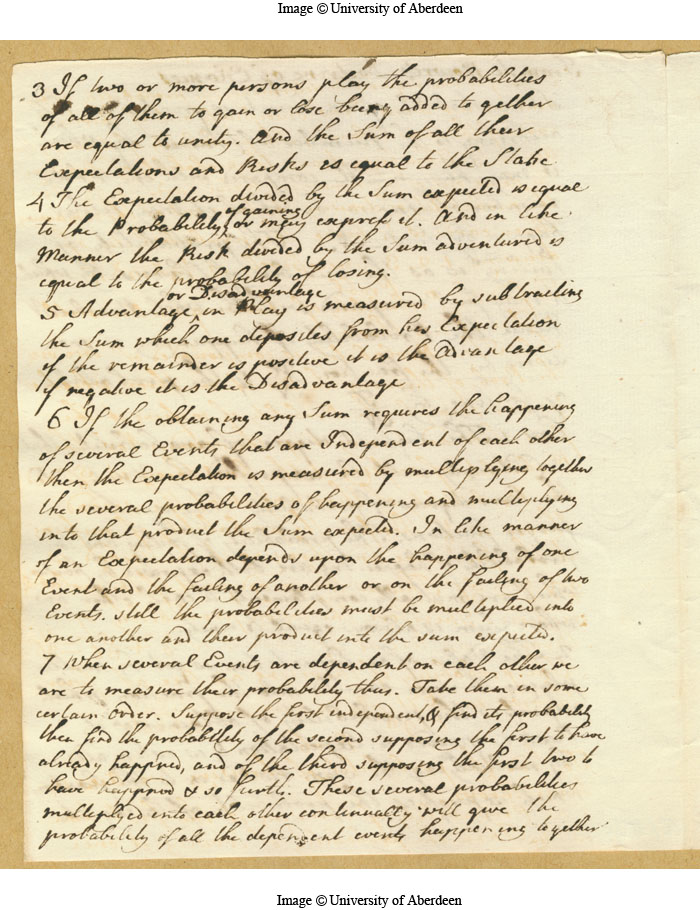 Image © University of Aberdeen
3 If two or more persons play the probabilities
of all of them to gain or lose being added to gether
are equal to unity. And the Sum of all their
Expectations and Risks is equal to the Stake
4 The Expectation divided by the Sum expected is equal
of gaining
to the Probability, or may express it. And in like
Manner the Risk divided by the Sum adventured is
equal to the probability of losing.
or Disadvantage
5 Advantage in Play is measured by subtracting
the Sum which one deposites from his Expectation
if the remainder is positive it is the Advantage
if negative it is the Disadvantage
6 If the obtaining any Sum requires the happening
of several Events that are Independent of each other
then the Expectation is measured by multiplying together
the several probabilities of happening and multiplying
into that product the Sum expected. In like manner
if an Expectation depends upon the happening of one
Event and the failing of another or on the failing of two
Events. still the probabilities must be multiplied into
one another and their product into the sum expected.
7 When several Events are dependent on each other we
are to measure their probability thus. Take them in some
certain Order. Suppose the first independent, & find its probability
then find the probability of the second supposing the first to have
already happned, and of the third supposing the first two to
have happned & so furth. These several probabilities
multiplyed into each other continually will give the
probability of all the dependent events happening together
Image © University of Aberdeen